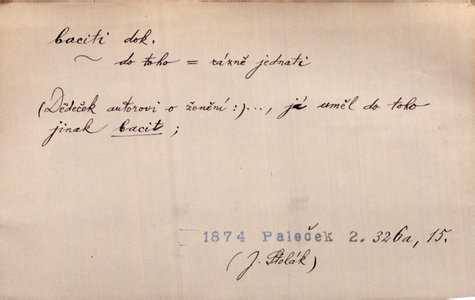 baciti dok.
~ do toho = rázně jednati
(Dědeček autorovi o ženění:)..., já uměl do toho
jinak bacit;
1874 Paleček 2. 326a, 15.
(J. Stolák)